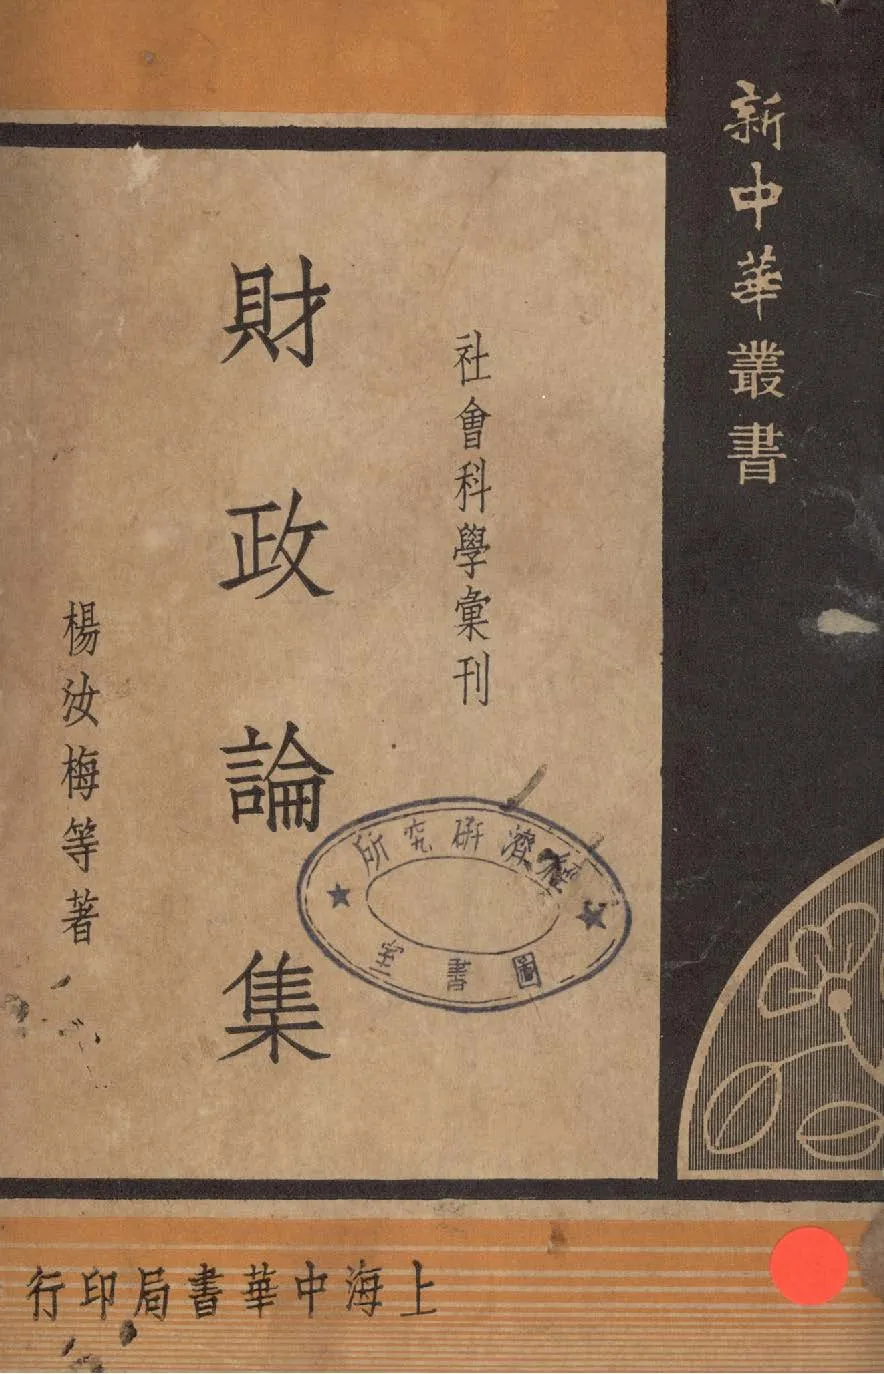 新中華叢書
社會科學彙刊
財政論集
楊汝梅等著
經濟研究所
圖書室
上海中華書局印行